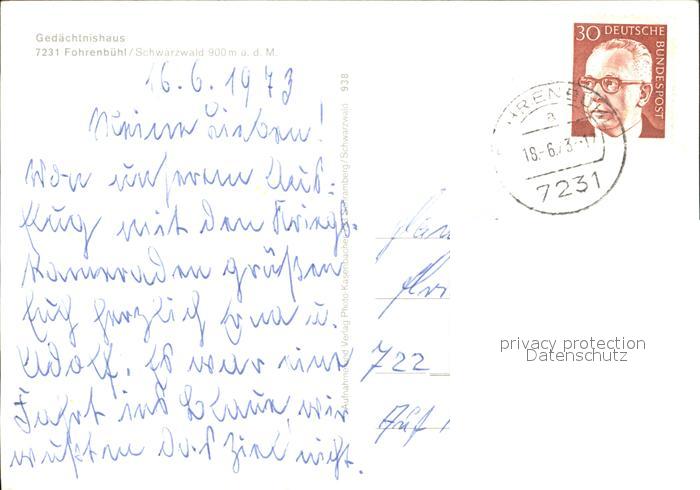 Gedächtnishaus
7231 Fohrenbühl / Schwarzwald 900 m ü. d. M.
16.6.1973
Meine Lieben!
Von unserem Aus-
flug mit den Kriegs-
kameraden grüßen
Euch herzlich Erna u.
Adolf. Es war eine
Fahrt ins Blaue, wir
wußten das Ziel nicht.
938
Aufnahme und Verlag Photo Kasenbacher, Schramberg / Schwarzwald
30 DEUTSCHE
BUNDESPOST
FOHRENBÜHL
a
18.-6.73.-17
7231
722
privacy protection
Datenschutz